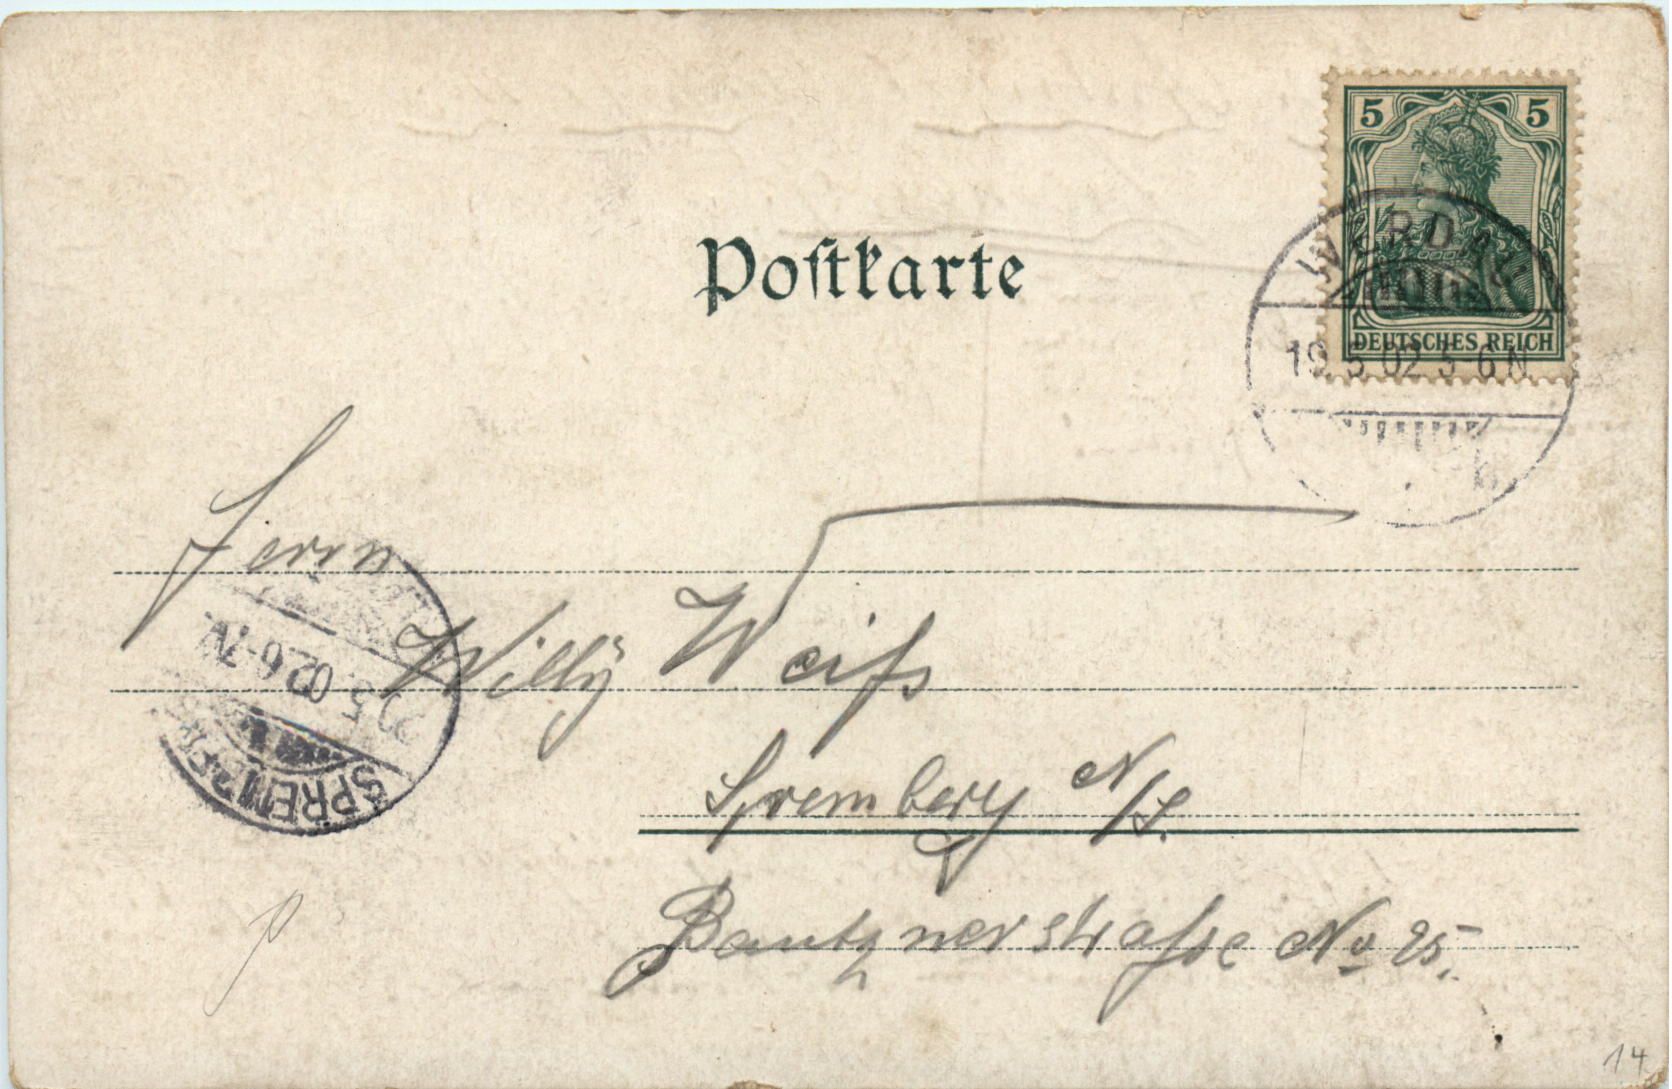 5 5
DEUTSCHES REICH
WERDAU
19.5.02.5-6N.
b.
Postkarte
Herrn
Willÿ Weiß
Spremberg N/L.
Bautznerstraße No 25.
5 02 6-7N
SPREMBERG
14